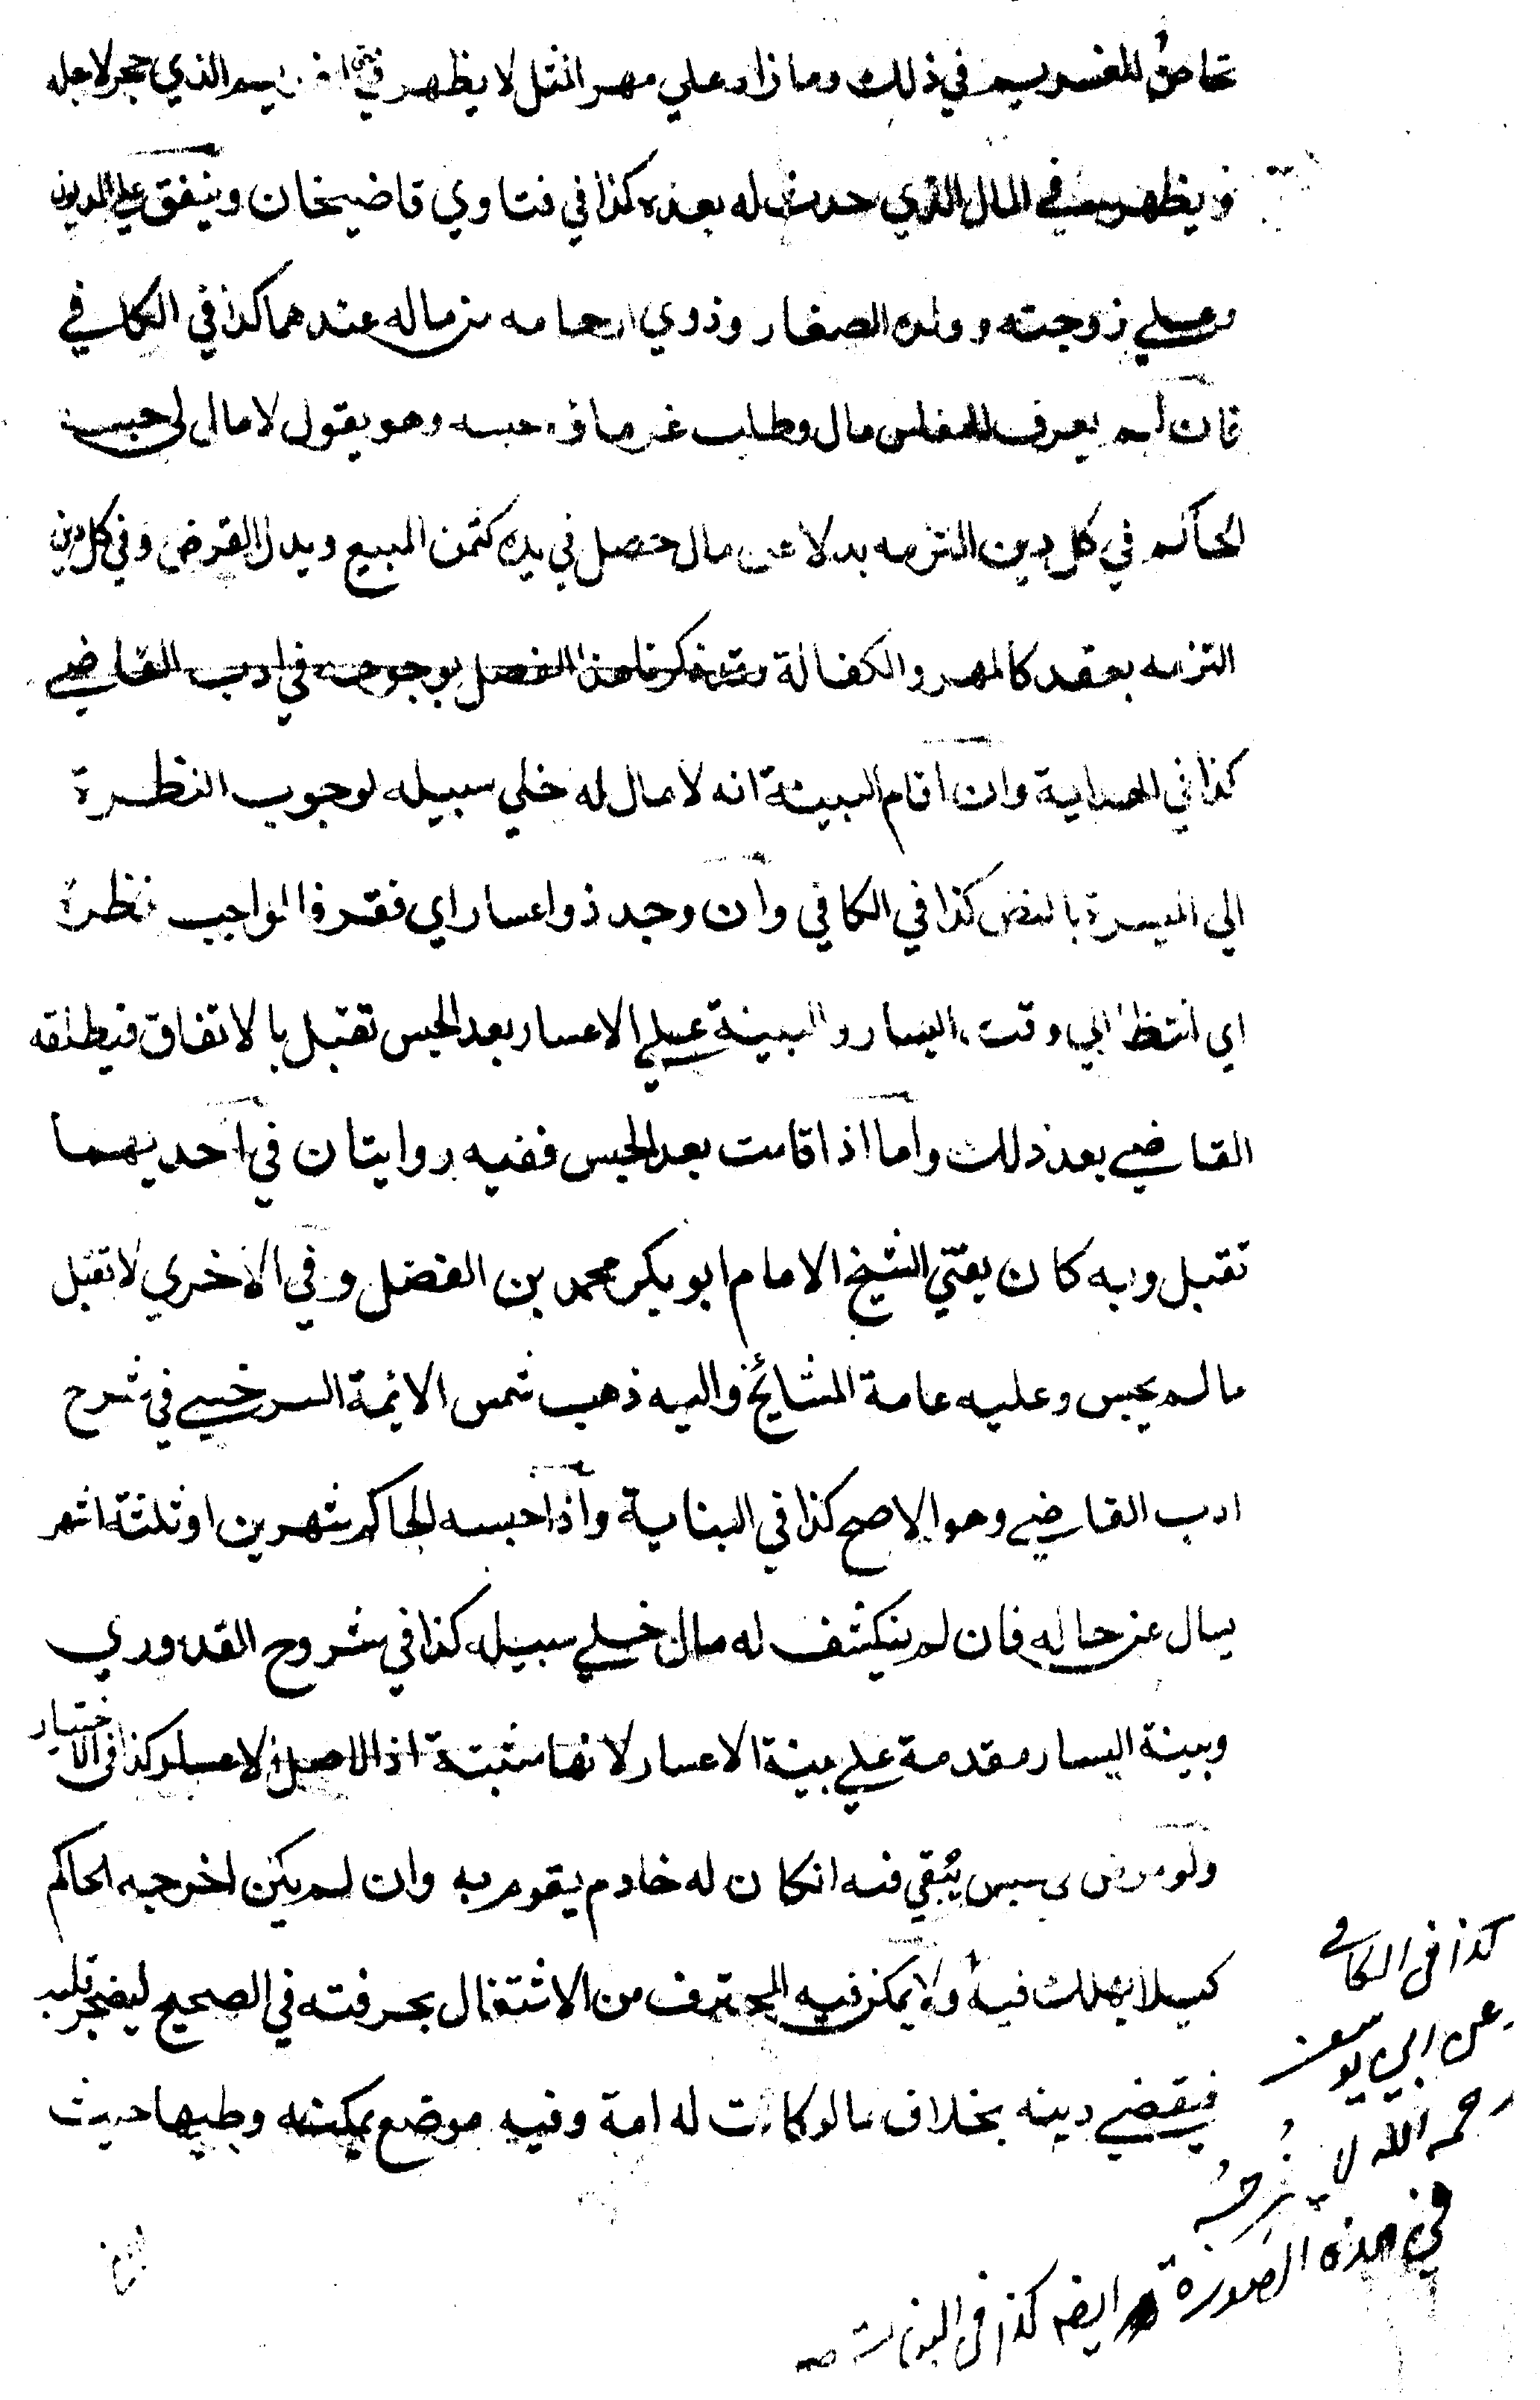 تحاص للغريم في ذلك وما زاد علي مهر المثل لا يظهر في الذي حجر لاجله
ويظهر في المال الذي حدث له بعده كذا في فتاوي قاضيخان وينفق علي المديون
وعلي زوجته وولده الصغار وذوي ارحامه من ماله عندهما كذا في الكافي
فان لم يعرف للمفلس مال وطلب غرماؤه حبسه وهو يقول لا مال لي حبسه
الحاكم في كل دين التزمه بدلا عن مال حصل في يده كثمن المبيع وبدل القرض وفي كل دين
التزمه بعقد كالمهر والكفالة وقد ذكرنا هذا الفصل بوجوهه في ادب القاضي
كذا في الهداية وان اقام البينة انه لا مال له خلي سبيله لوجوب النظرة
الي الميسرة بالنص كذا في الكافي وان وجد ذو اعسار اي فقر فالواجب نظرة
اي انتظار الي وقت اليسار والبينة علي الاعسار بعد الحبس تقبل بالاتفاق فيطلقه
القاضي بعد ذلك واما اذا قامت بعد الحبس ففيه روايتان في احديهما
تقبل وبه كان يفتي الشيخ الامام ابو بكر محمد بن الفضل وفي الاخري لا تقبل
ما لم يحبس وعليه عامة المشائخ واليه ذهب شمس الائمة السرخسي في شرح
ادب القاضي وهو الاصح كذا في البناية واذا حبسه الحاكم شهرين او ثلثة اشهر
يسال عن حاله فان لم ينكشف له مال خلي سبيله كذا في شروح القدوري
وبينة اليسار مقدمة علي بينة الاعسار لانها مثبتة اذ الاصل الاعسار كذا في الاختيار
ولو مرض يبقي فيه انكان له خادم يقوم به وان لم يكن اخرجه الحاكم
كيلا يهلك فيه ولا يمكن فيه المحترف من الاشتغال بحرفته في الصحيح ليضجر قلبه
فيقضي دينه بخلاف ما لو كانت له امة وفيه موضع يمكنه وطيها حيث
كذا في الكافي
عن ابي يوسف
رحمه الله لا يخرجه
في هذه الصورة ايضه كذا في